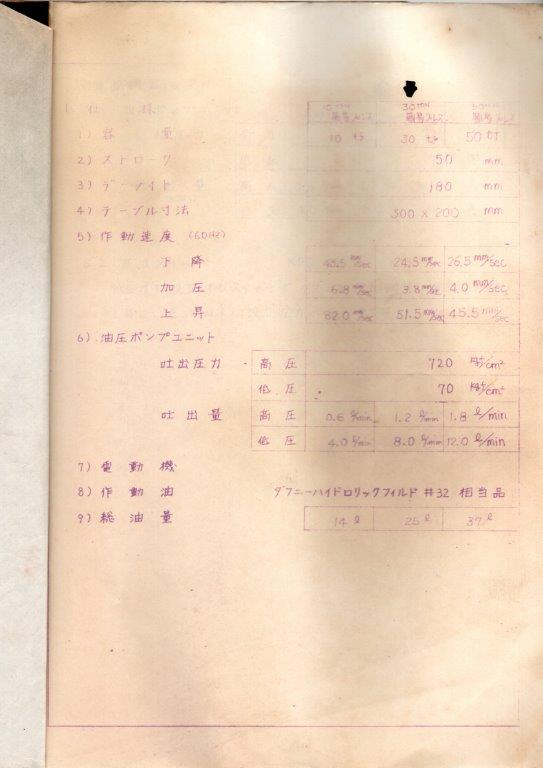 1. 仕 様
10 TON 簡易プレス 30 TON 簡易プレス 50 TON 簡易プレス
1) 容 量 10 30 50
2) ストローク 50 mm
3) デーライト 180 mm
4) テーブル寸法 300 × 200 mm
5) 作動速度 (60Hz)
下 降 45.5 mm/sec 24.5 mm/sec 26.5 mm/sec
加 圧 6.8 mm/sec 3.8 mm/sec 4.0 mm/sec
上 昇 82.0 mm/sec 51.5 mm/sec 45.5 mm/sec
6) 油圧ポンプユニット
吐出圧力 高 圧 720 kgf/cm²
低 圧 70 kgf/cm²
吐出量 高 圧 0.6 ℓ/min 1.2 ℓ/min 1.8 ℓ/min
低 圧 4.0 ℓ/min 8.0 ℓ/min 12.0 ℓ/min
7) 電動機
8) 作動油 ダフニーハイドロリックフィルド #32 相当品
9) 総油量 14 ℓ 25 ℓ 37 ℓ